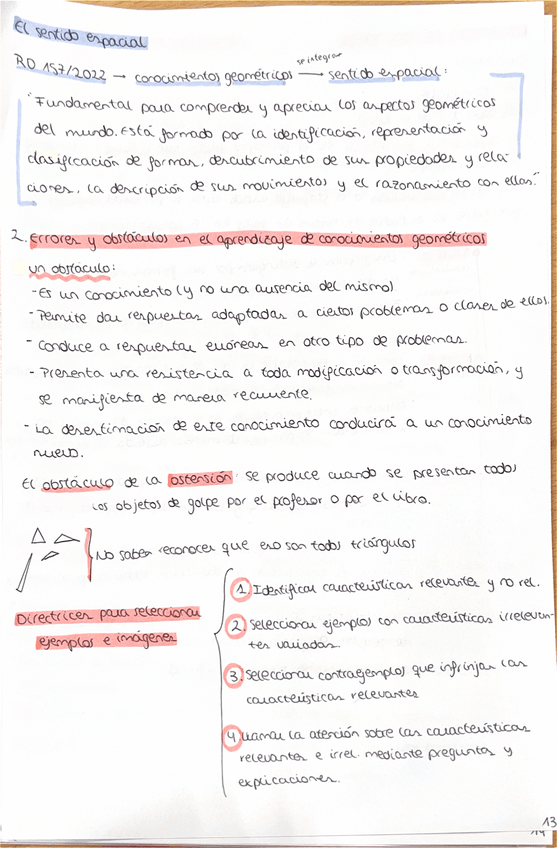 El sentido espacial
se integran
RD 157/2022 → conocimientos geométricos → sentido espacial:
"Fundamental para comprender y apreciar los aspectos geométricos
del mundo. Está formado por la identificación, representación y
clasificación de formas, descubrimiento de sus propiedades y rela-
ciones, la descripción de sus movimientos y el razonamiento con ellas."
2. Errores y obstáculos en el aprendizaje de conocimientos geométricos
un obstáculo:
- Es un conocimiento (y no una ausencia del mismo)
- Permite dar respuestas adaptadas a ciertos problemas o clases de ellos.
- Conduce a respuestas erróneas en otro tipo de problemas.
- Presenta una resistencia a toda modificación o transformación, y
se manifiesta de manera recurrente.
- La desestimación de este conocimiento conducirá a un conocimiento
nuevo.
El obstáculo de la ostensión: se produce cuando se presentan todos
los objetos de golpe por el profesor o por el libro.
No saber reconocer que eso son todos triángulos
Directrices para seleccionar
ejemplos e imágenes
1. Identificar características relevantes y no rel.
2. Seleccionar ejemplos con características irrelevan-
tes variadas.
3. Seleccionar contraejemplos que infrinjan las
características relevantes
4. Llamar la atención sobre las características
relevantes e irrel. mediante preguntas y
explicaciones.
13
14